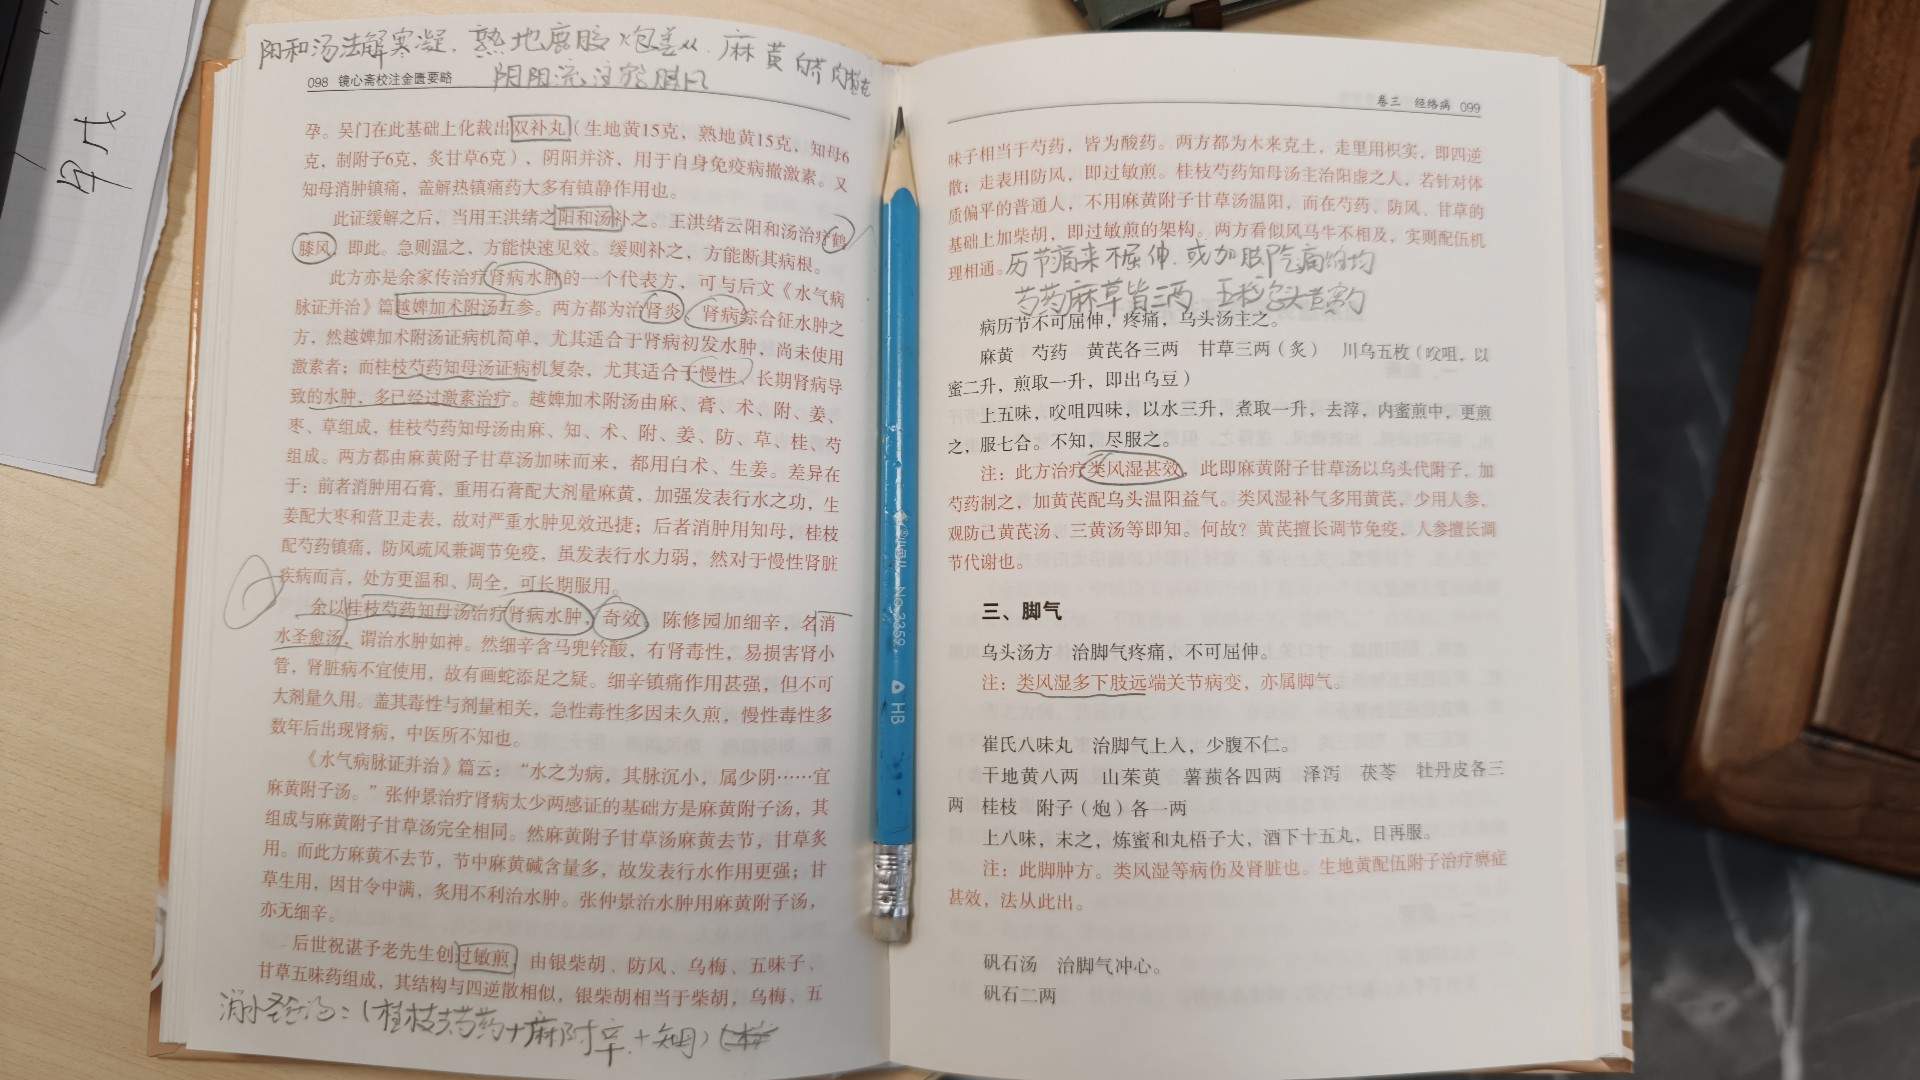 阳和汤法解寒凝，熟地鹿胶炮姜从，麻黄白芥肉桂
阴阳流注鹤膝风
098 镜心斋校注金匮要略
孕。吴门在此基础上化裁出双补丸（生地黄15克，熟地黄15克，知母6
克，制附子6克，炙甘草6克），阴阳并济，用于自身免疫病撤激素。又
知母消肿镇痛，盖解热镇痛药大多有镇静作用也。
此证缓解之后，当用王洪绪之阳和汤补之。王洪绪云阳和汤治疗鹤
膝风，即此。急则温之，方能快速见效。缓则补之，方能断其病根。
此方亦是余家传治疗肾病水肿的一个代表方，可与后文《水气病
脉证并治》篇越婢加术附汤互参。两方都为治肾炎、肾病综合征水肿之
方，然越婢加术附汤证病机简单，尤其适合于肾病初发水肿，尚未使用
激素者；而桂枝芍药知母汤证病机复杂，尤其适合于慢性、长期肾病导
致的水肿，多已经过激素治疗。越婢加术附汤由麻、膏、术、附、姜、
枣、草组成，桂枝芍药知母汤由麻、知、术、附、姜、防、草、桂、芍
组成。两方都由麻黄附子甘草汤加味而来，都用白术、生姜。差异在
于：前者消肿用石膏，重用石膏配大剂量麻黄，加强发表行水之功，生
姜配大枣和营卫走表，故对严重水肿见效迅捷；后者消肿用知母，桂枝
配芍药镇痛，防风疏风兼调节免疫，虽发表行水力弱，然对于慢性肾脏
疾病而言，处方更温和、周全，可长期服用。
余以桂枝芍药知母汤治疗肾病水肿，奇效。陈修园加细辛，名消
水圣愈汤，谓治水肿如神。然细辛含马兜铃酸，有肾毒性，易损害肾小
管，肾脏病不宜使用，故有画蛇添足之疑。细辛镇痛作用甚强，但不可
大剂量久用。盖其毒性与剂量相关，急性毒性多因未久煎，慢性毒性多
数年后出现肾病，中医所不知也。
《水气病脉证并治》篇云：“水之为病，其脉沉小，属少阴……宜
麻黄附子汤。”张仲景治疗肾病太少两感证的基础方是麻黄附子汤，其
组成与麻黄附子甘草汤完全相同。然麻黄附子甘草汤麻黄去节，甘草炙
用。而此方麻黄不去节，节中麻黄碱含量多，故发表行水作用更强；甘
草生用，因甘令中满，炙用不利治水肿。张仲景治水肿用麻黄附子汤，
亦无细辛。
后世祝谌予老先生创过敏煎，由银柴胡、防风、乌梅、五味子、
甘草五味药组成，其结构与四逆散相似，银柴胡相当于柴胡，乌梅、五
消水圣愈汤：（桂枝去芍药+麻附辛+知母）
中华 No.3359 HB
卷三 经络病 099
味子相当于芍药，皆为酸药。两方都为木来克土，走里用枳实，即四逆
散；走表用防风，即过敏煎。桂枝芍药知母汤主治阳虚之人，若针对体
质偏平的普通人，不用麻黄附子甘草汤温阳，而在芍药、防风、甘草的
基础上加柴胡，即过敏煎的架构。两方看似风马牛不相及，实则配伍机
理相通。
历节痛来不屈伸，或加脚气痛均
芍药麻草皆三两，五枚乌头
病历节不可屈伸，疼痛，乌头汤主之。
麻黄 芍药 黄芪各三两 甘草三两（炙） 川乌五枚（㕮咀，以
蜜二升，煎取一升，即出乌豆）
上五味，㕮咀四味，以水三升，煮取一升，去滓，内蜜煎中，更煎
之，服七合。不知，尽服之。
注：此方治疗类风湿甚效。此即麻黄附子甘草汤以乌头代附子，加
芍药制之，加黄芪配乌头温阳益气。类风湿补气多用黄芪，少用人参，
观防己黄芪汤、三黄汤等即知。何故？黄芪擅长调节免疫，人参擅长调
节代谢也。
三、脚气
乌头汤方 治脚气疼痛，不可屈伸。
注：类风湿多下肢远端关节病变，亦属脚气。
崔氏八味丸 治脚气上入，少腹不仁。
干地黄八两 山茱萸 薯蓣各四两 泽泻 茯苓 牡丹皮各三
两 桂枝 附子（炮）各一两
上八味，末之，炼蜜和丸梧子大，酒下十五丸，日再服。
注：此脚肿方。类风湿等病伤及肾脏也。生地黄配伍附子治疗痹症
甚效，法从此出。
矾石汤 治脚气冲心。
矾石二两